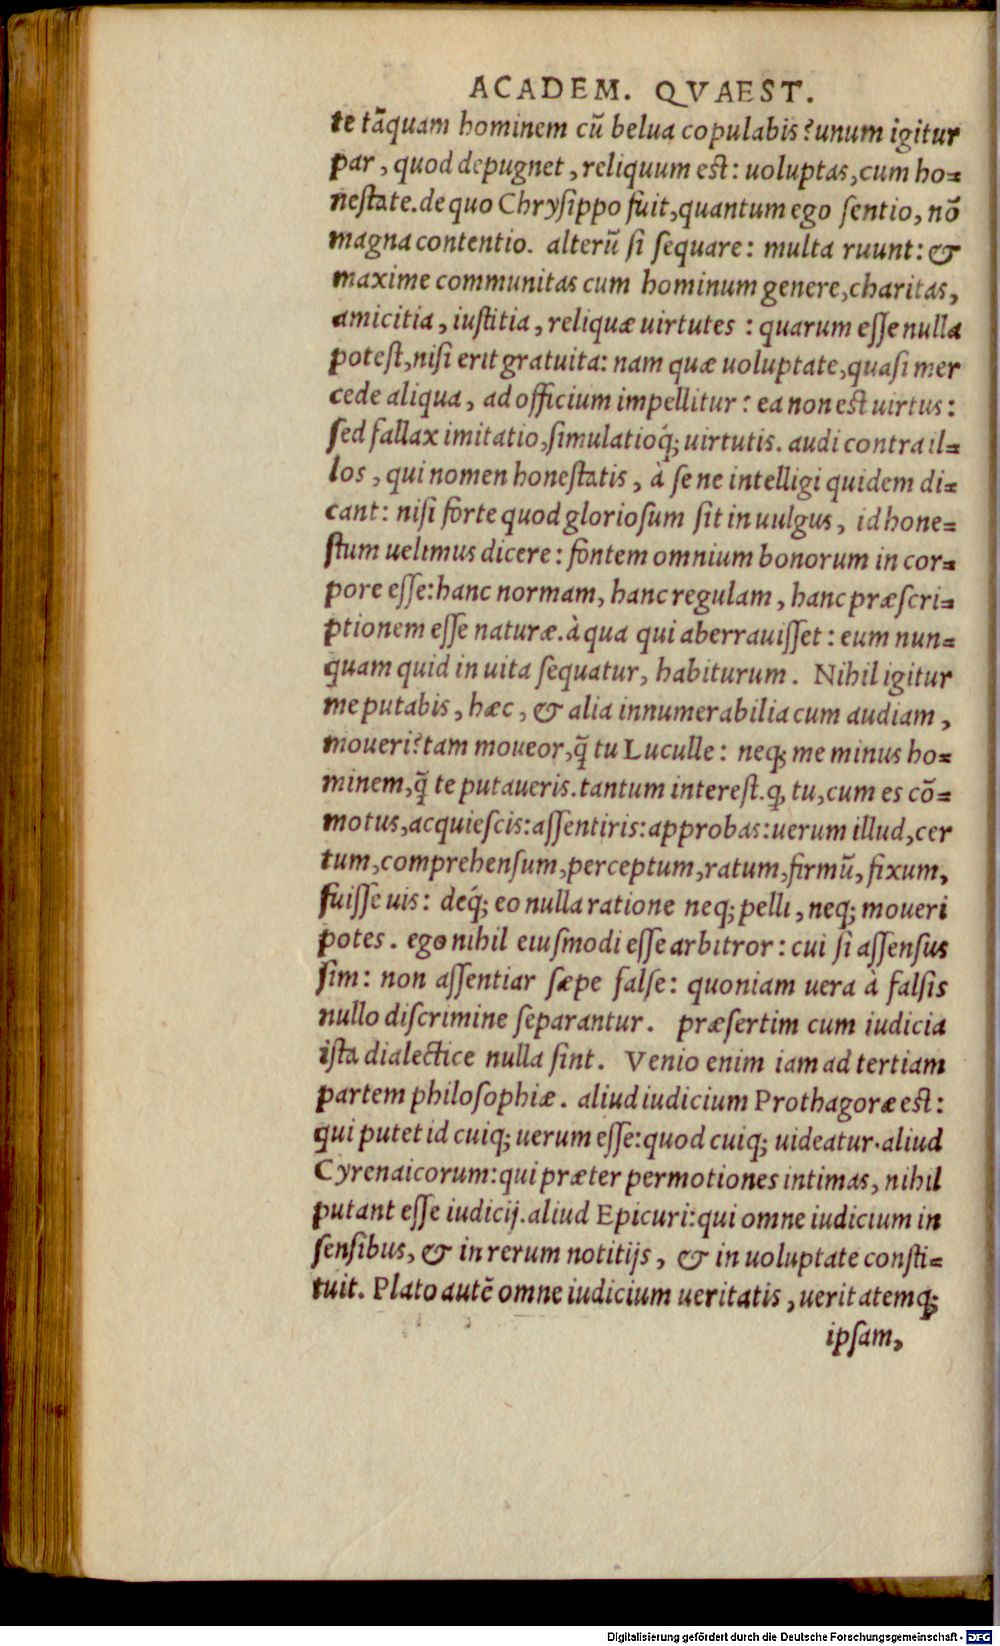 ACADEM. QVAEST.
te tāquam hominem cū belua copulabis? unum igitur
par, quod depugnet, reliquum est: uoluptas, cum ho=
nestate. de quo Chrysippo fuit, quantum ego sentio, nō
magna contentio. alterū si sequare: multa ruunt: &
maxime communitas cum hominum genere, charitas,
amicitia, iustitia, reliquæ uirtutes: quarum esse nulla
potest, nisi erit gratuita: nam quæ uoluptate, quasi mer
cede aliqua, ad officium impellitur: ea non est uirtus:
sed fallax imitatio, simulatioq́; uirtutis. audi contra il=
los, qui nomen honestatis, à se ne intelligi quidem di=
cant: nisi forte quod gloriosum sit in uulgus, id hone=
stum uelimus dicere: fontem omnium bonorum in cor=
pore esse: hanc normam, hanc regulam, hanc præscri=
ptionem esse naturæ. à qua qui aberrauisset: eum nun=
quam quid in uita sequatur, habiturum. Nihil igitur
me putabis, hæc, & alia innumerabilia cum audiam,
moueri? tam moueor, q̄ tu Luculle: neq; me minus ho=
minem, q̄ te putaueris. tantum interest. ꝙ tu, cum es cō=
motus, acquiescis: assentiris: approbas: uerum illud, cer
tum, comprehensum, perceptum, ratum, firmū, fixum,
fuisse uis: deq́; eo nulla ratione neq; pelli, neq; moueri
potes. ego nihil eiusmodi esse arbitror: cui si assensus
sim: non assentiar sæpe false: quoniam uera à falsis
nullo discrimine separantur. præsertim cum iudicia
ista dialectice nulla sint. Venio enim iam ad tertiam
partem philosophiæ. aliud iudicium Prothagoræ est:
qui putet id cuiq; uerum esse: quod cuiq; uideatur. aliud
Cyrenaicorum: qui præter permotiones intimas, nihil
putant esse iudicij. aliud Epicuri: qui omne iudicium in
sensibus, & in rerum notitijs, & in uoluptate consti=
tuit. Plato autē omne iudicium ueritatis, ueritatemq;
ipsam,
Digitalisierung gefördert durch die Deutsche Forschungsgemeinschaft - DFG